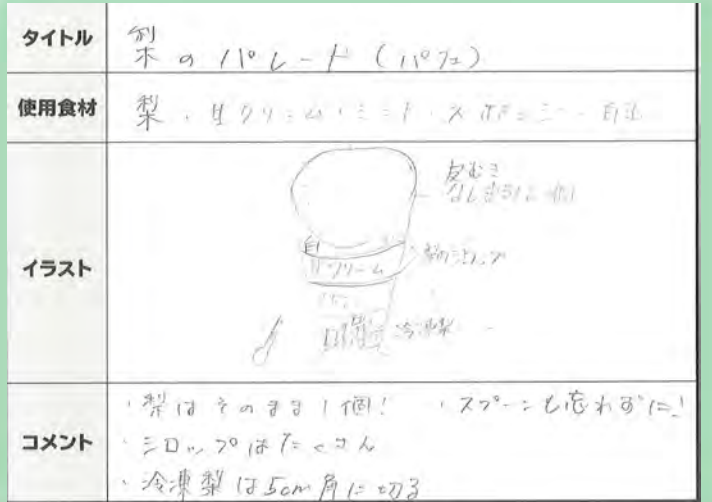 タイトル
梨のパレード(パフェ)
使用食材
梨・生クリーム・ミント・スポンジ
イラスト
皮むき
なしまるまる1個
生クリーム
梨のシロップ
冷凍梨
コメント
・梨はそのまま1個! ・スプーンも忘れずに!
・シロップはたくさん
・冷凍梨は5cm角に切る